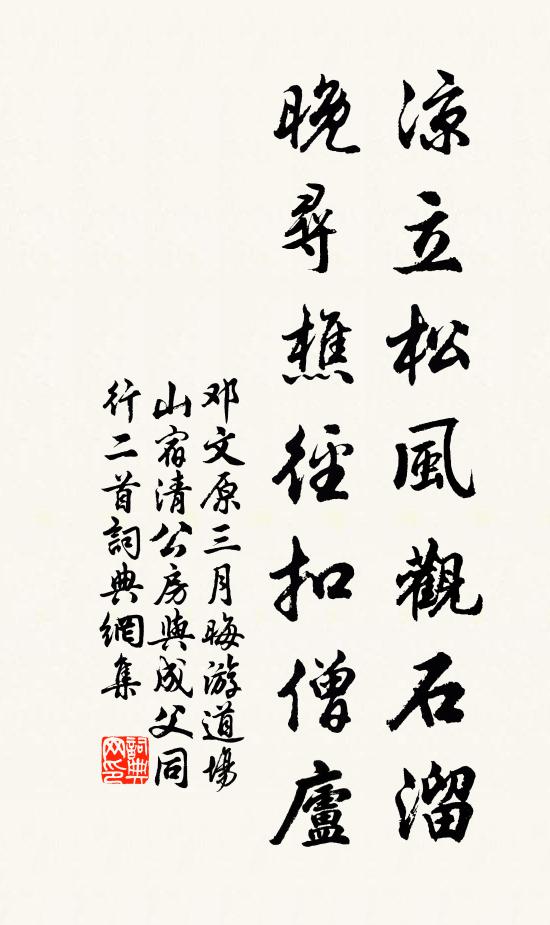 涼立松風觀石溜
晚尋樵徑扣僧廬
邓文原三月晦游道場
山宿清公房與成父同
行二首詞典網集
詞典
网印